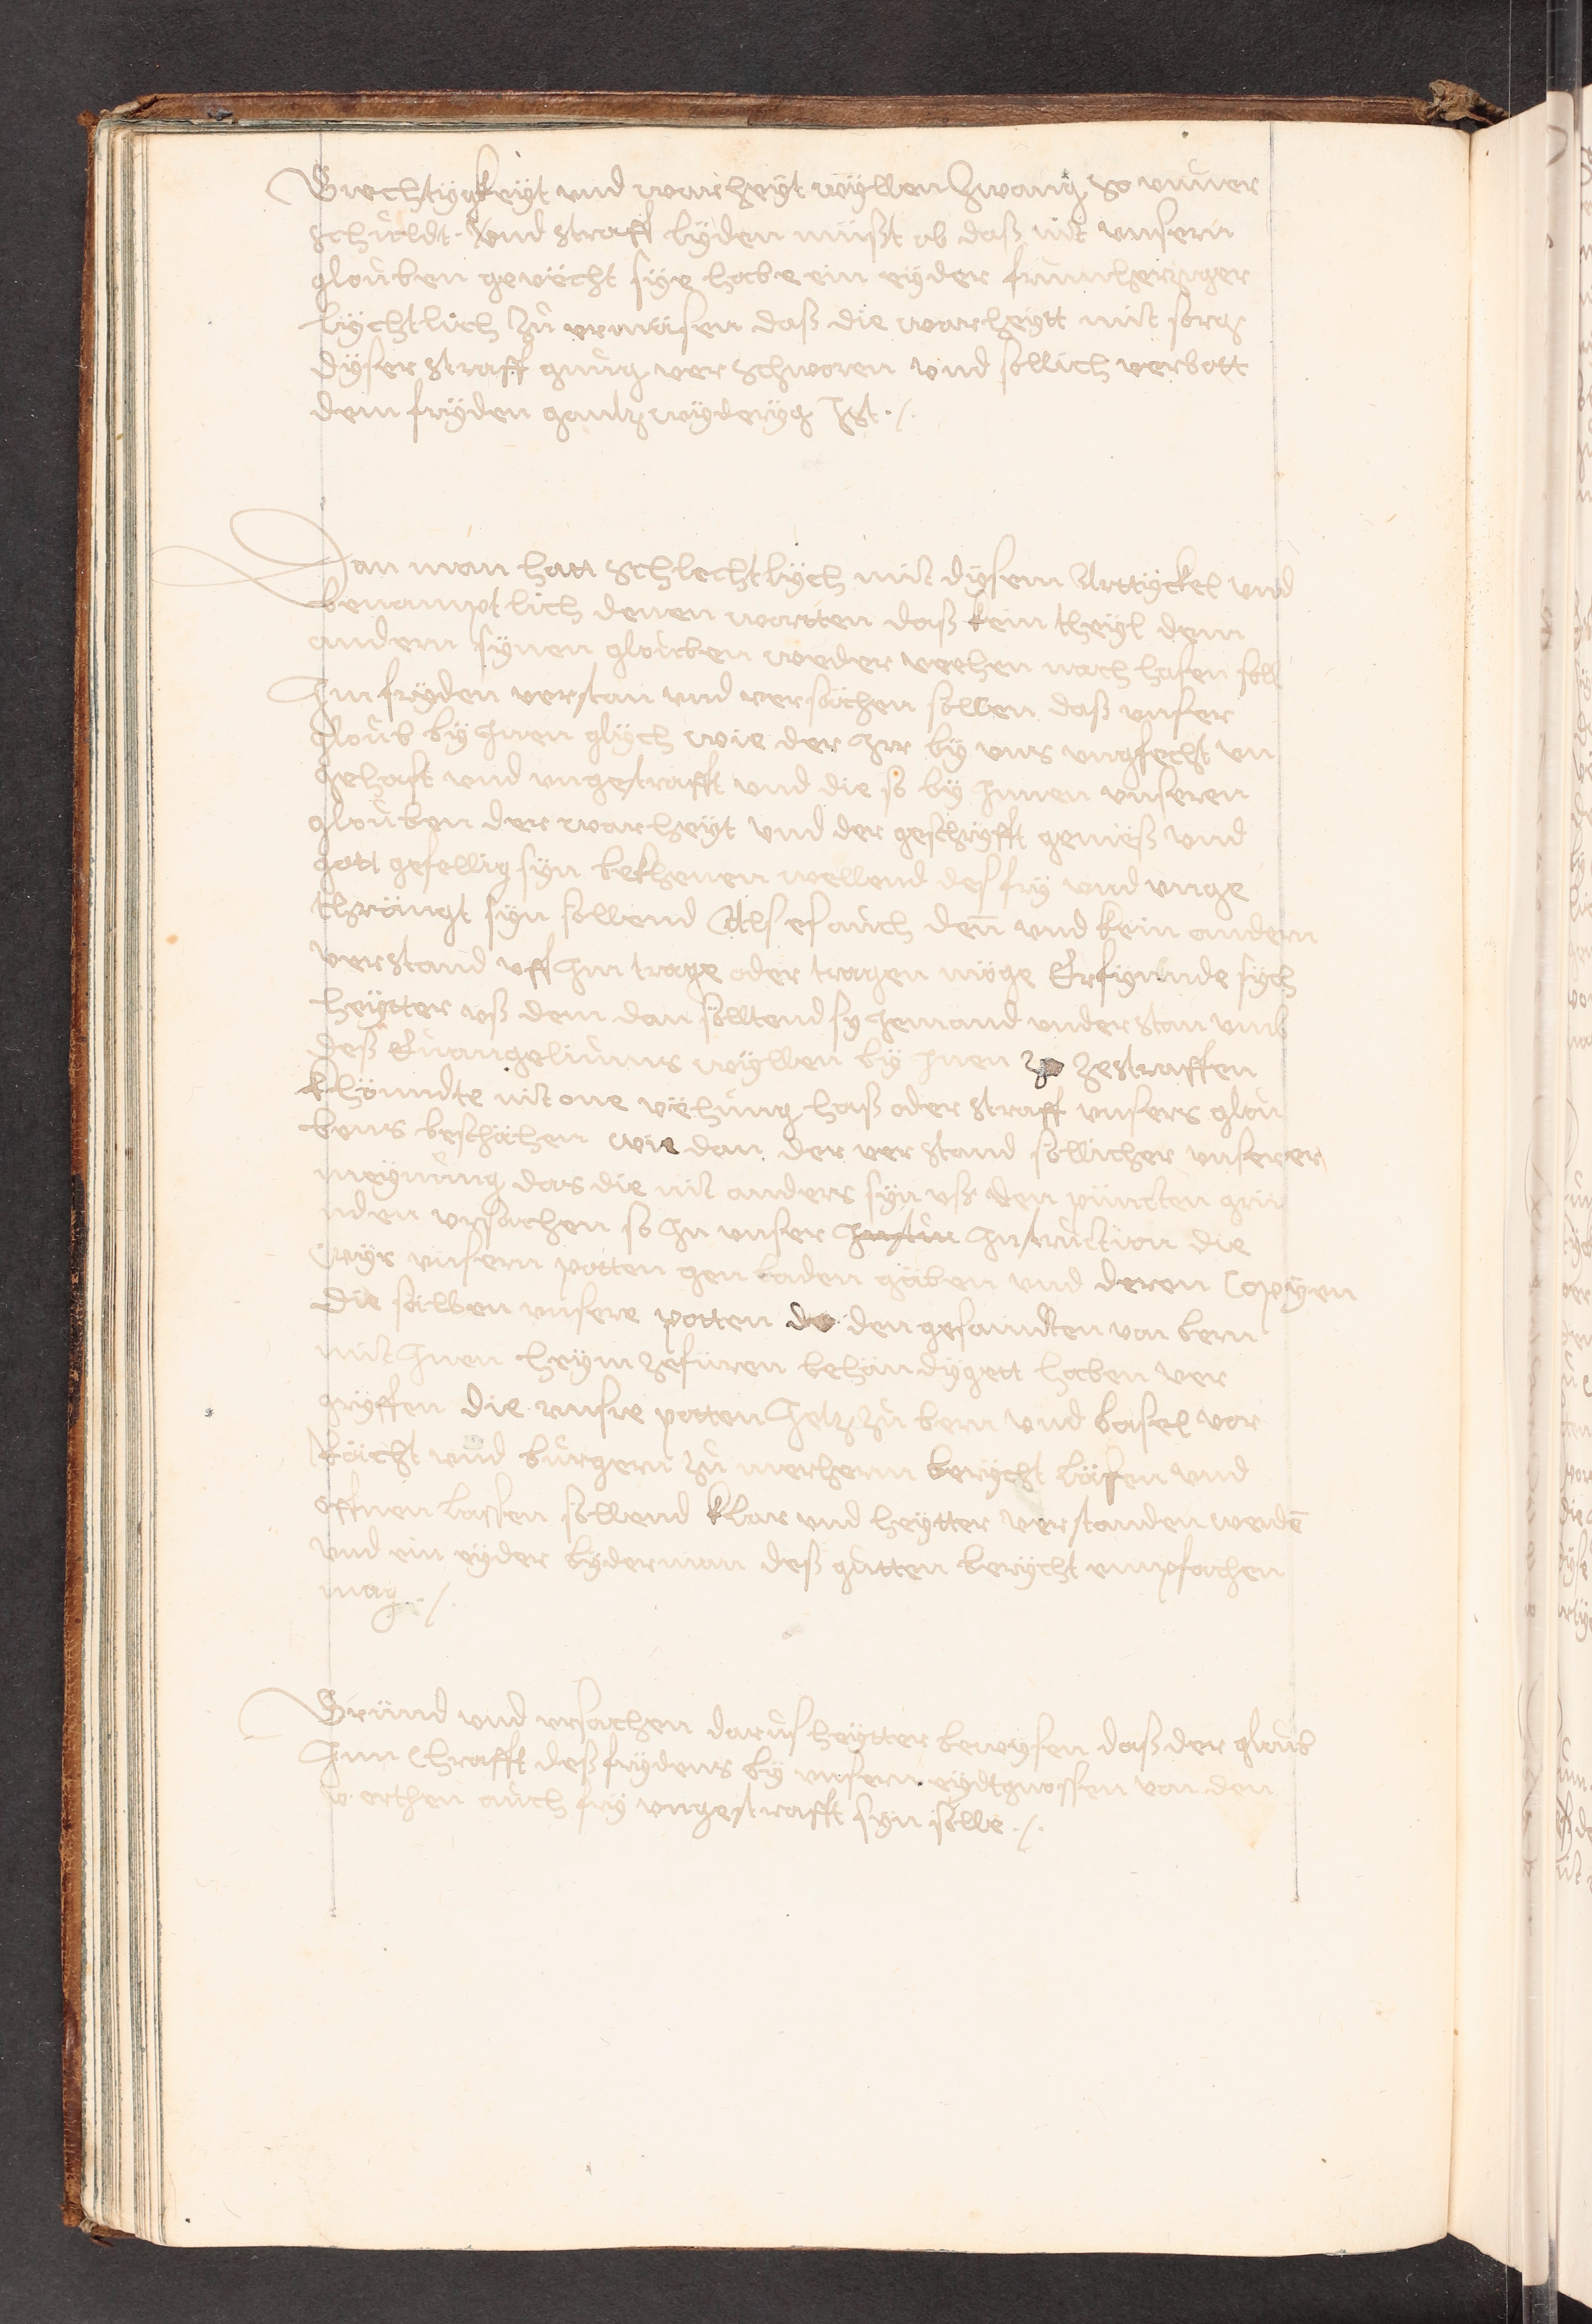 Grechtygkeyt und warheyt wyllen Zwang so unver
schuldt. Und straff lyden müßt ob daß nit unsern
glouben gevëcht sÿe habe ein eÿder frumherziger
lÿchtlich Zu ermäsen daß die warheytt mit sorg
dÿser straff gnug verschworen und sollich verbott
dem frÿden gantz wÿderÿg Ist ./.
Dan man hatt schlechtlÿch mit dÿsem Arttÿckel und
benamptlich denen wortten daß kein theyl dem
andern sÿnen glouben weder vechen noch hasen soll
Im frÿden verstan und versächen sollen daß unser
gloub bÿ Inen glÿch wie der Irr bÿ uns ungfecht un
gehast und ungestrafft und die so bÿ Innen unseren
glouben der warheyt und der geschrÿfft gemëß und
gott gefellig sÿn bekhenen wellend des frÿ und unge
thrängt sÿn sollend Als es auch den̄ und kein andern
verstand uff Im trage oder tragen möge Erfyninde sÿch
heytter uß dem dan solltend sy Iemand understan umb
deß Euangeliums wÿllen bÿ Inen zestraffen
khöndte nit one vëhung haß oder straff unsers glou
bens beschächen wie dan der verstand sollicher unserer
meÿnung das die nit anders sÿn uß den puncten grü
nden ursachen so In unser Instru Instruction die
wÿr unsern potten gen baden gäben und deren Copÿen
die sälben unsere potten de den gesandten von bern
mit Inen heÿm zefüren behändÿgett haben ver
gryffen die unsre potten Ietz zu bern und basel vor
Rächt und burgern zu merherm berÿcht läsen und
offnen lassen sollend klar und heytter verstanden werdē
und ein eÿder bÿderman deß gutten berÿcht empfachen
mag ./.
Gründ und ursachen darus heytter bewysen daß der gloub
Inn Chrafft deß frÿdens bÿ unsern eydtgnossen von den
v. orthen auch frÿ ungestrafft sÿn sölle ./.